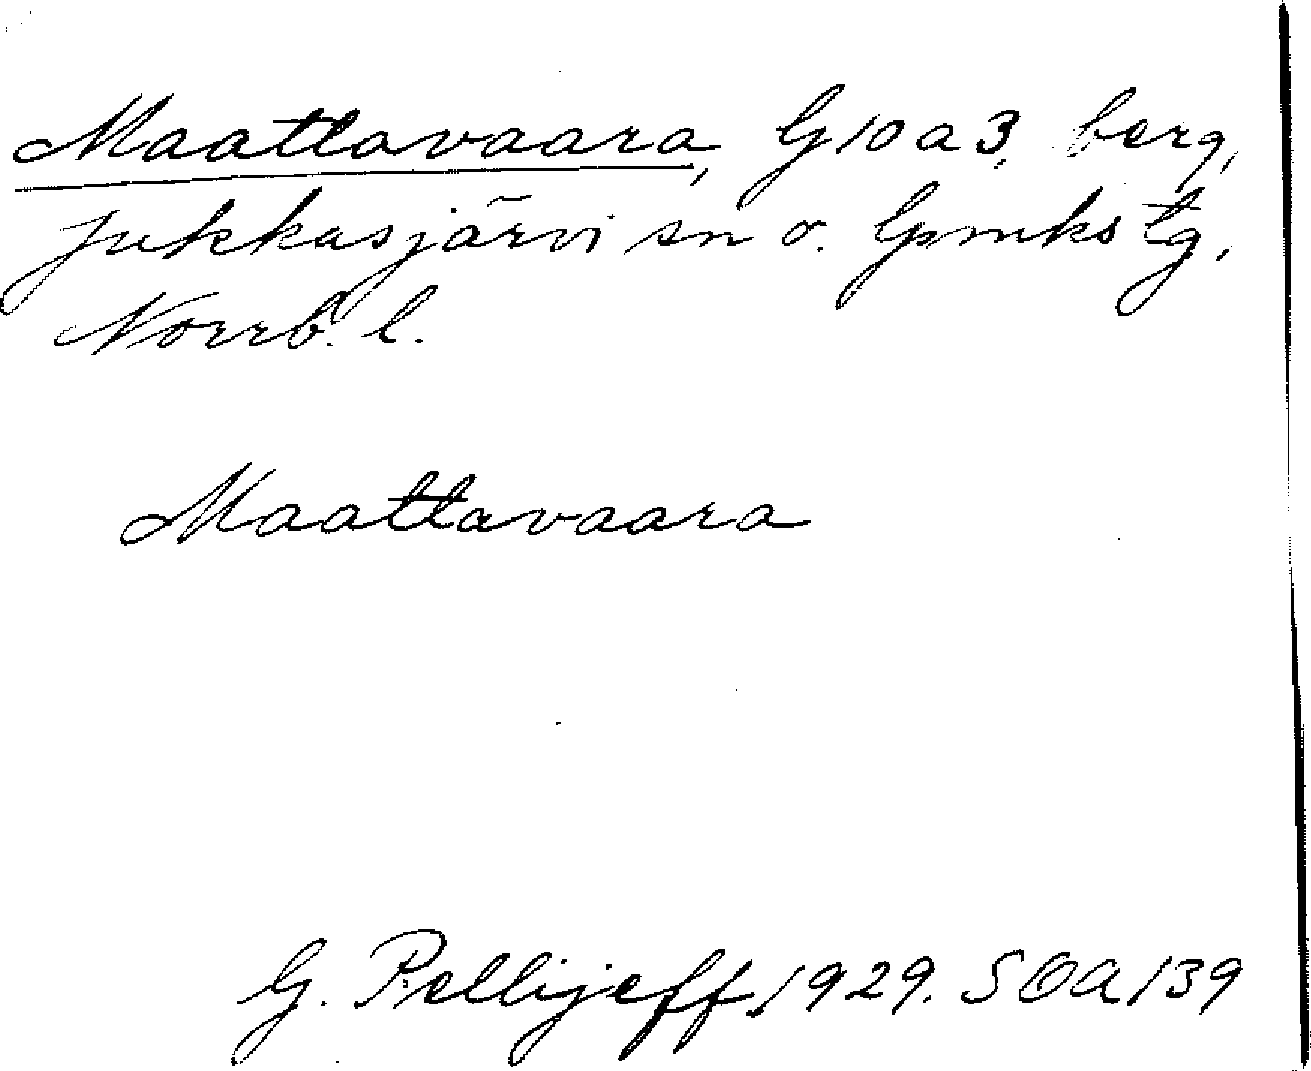 Maattavaara, G10a3, berg,
Jukkasjärvi sn o. lpmkstg,
Norrb. l.
Maattavaara
G. Pellijeff, 1929. SOA 139